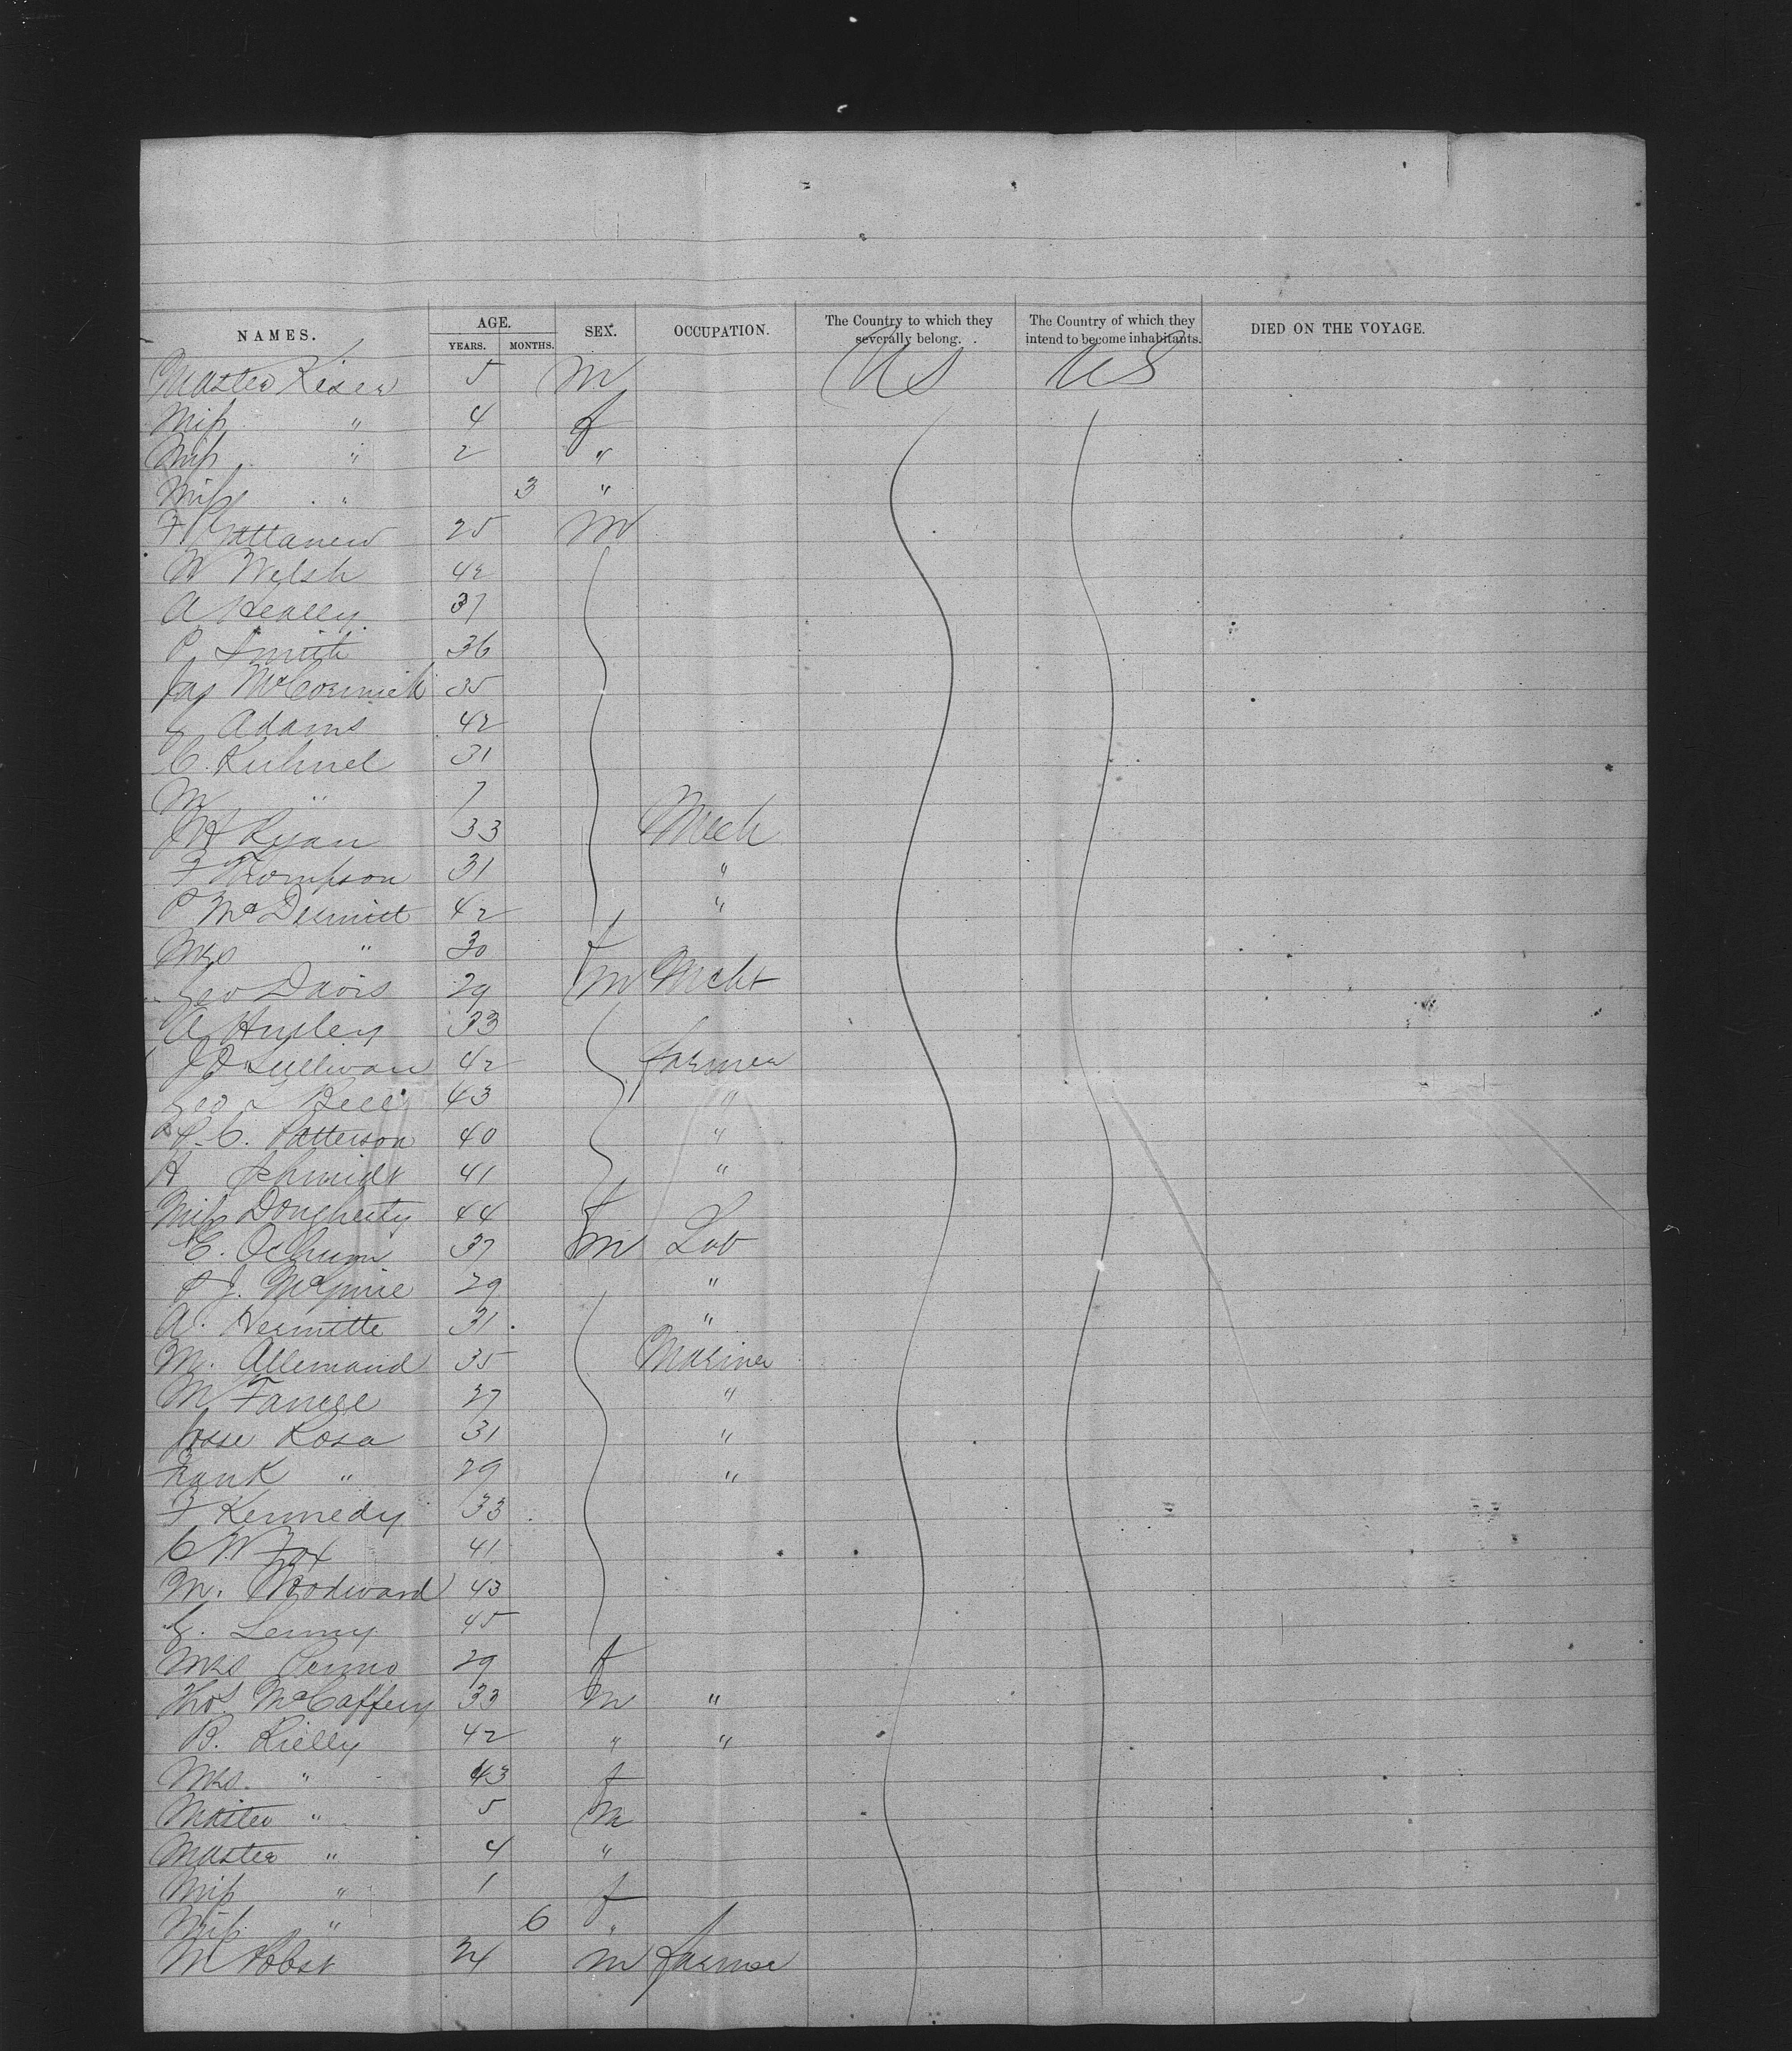 NAMES. AGE. SEX. OCCUPATION. The Country to which they severally belong. The Country of which they intend to become inhabitants. DIED ON THE VOYAGE.
YEARS. MONTHS.
Master Kiser 5 m US US
Miss " 4 f
Miss " 2 "
Miss " 3 "
F 25 M
W Welsh 42
A Healey 37
P. Smith 36
Jas McCormick 35
Adams 42
C. Kuhnel 31
M " 7
J H Ryan 33 Mech
F Thompson 31 "
P McDermitt 42 "
Mrs " 30 f
Geo Davis 29 m Mcht
A Huxley 33
J O Sullivan 42 farmer
Geo Bell 43 "
P. C. Patterson 40 "
H Schmidt 41 "
Miss Dougherty 44 f
E. 37 m Lab
P J. McGuire 29 "
A. Hermitte 31 "
M. Allemand 35 Mariner
M 27 "
Josse Rosa 31 "
Frank " 29 "
F Kennedy 33
C W Fox 41
M. Woodward 43
Lenny 45
Mrs 29 f
Thos McCaffery 33 m "
B. Rielly 42 " "
Mrs. " 43 f
Master " 5 m
Master " 4 "
Miss " 1 f
Miss " 6 "
M Pobst 24 m farmer